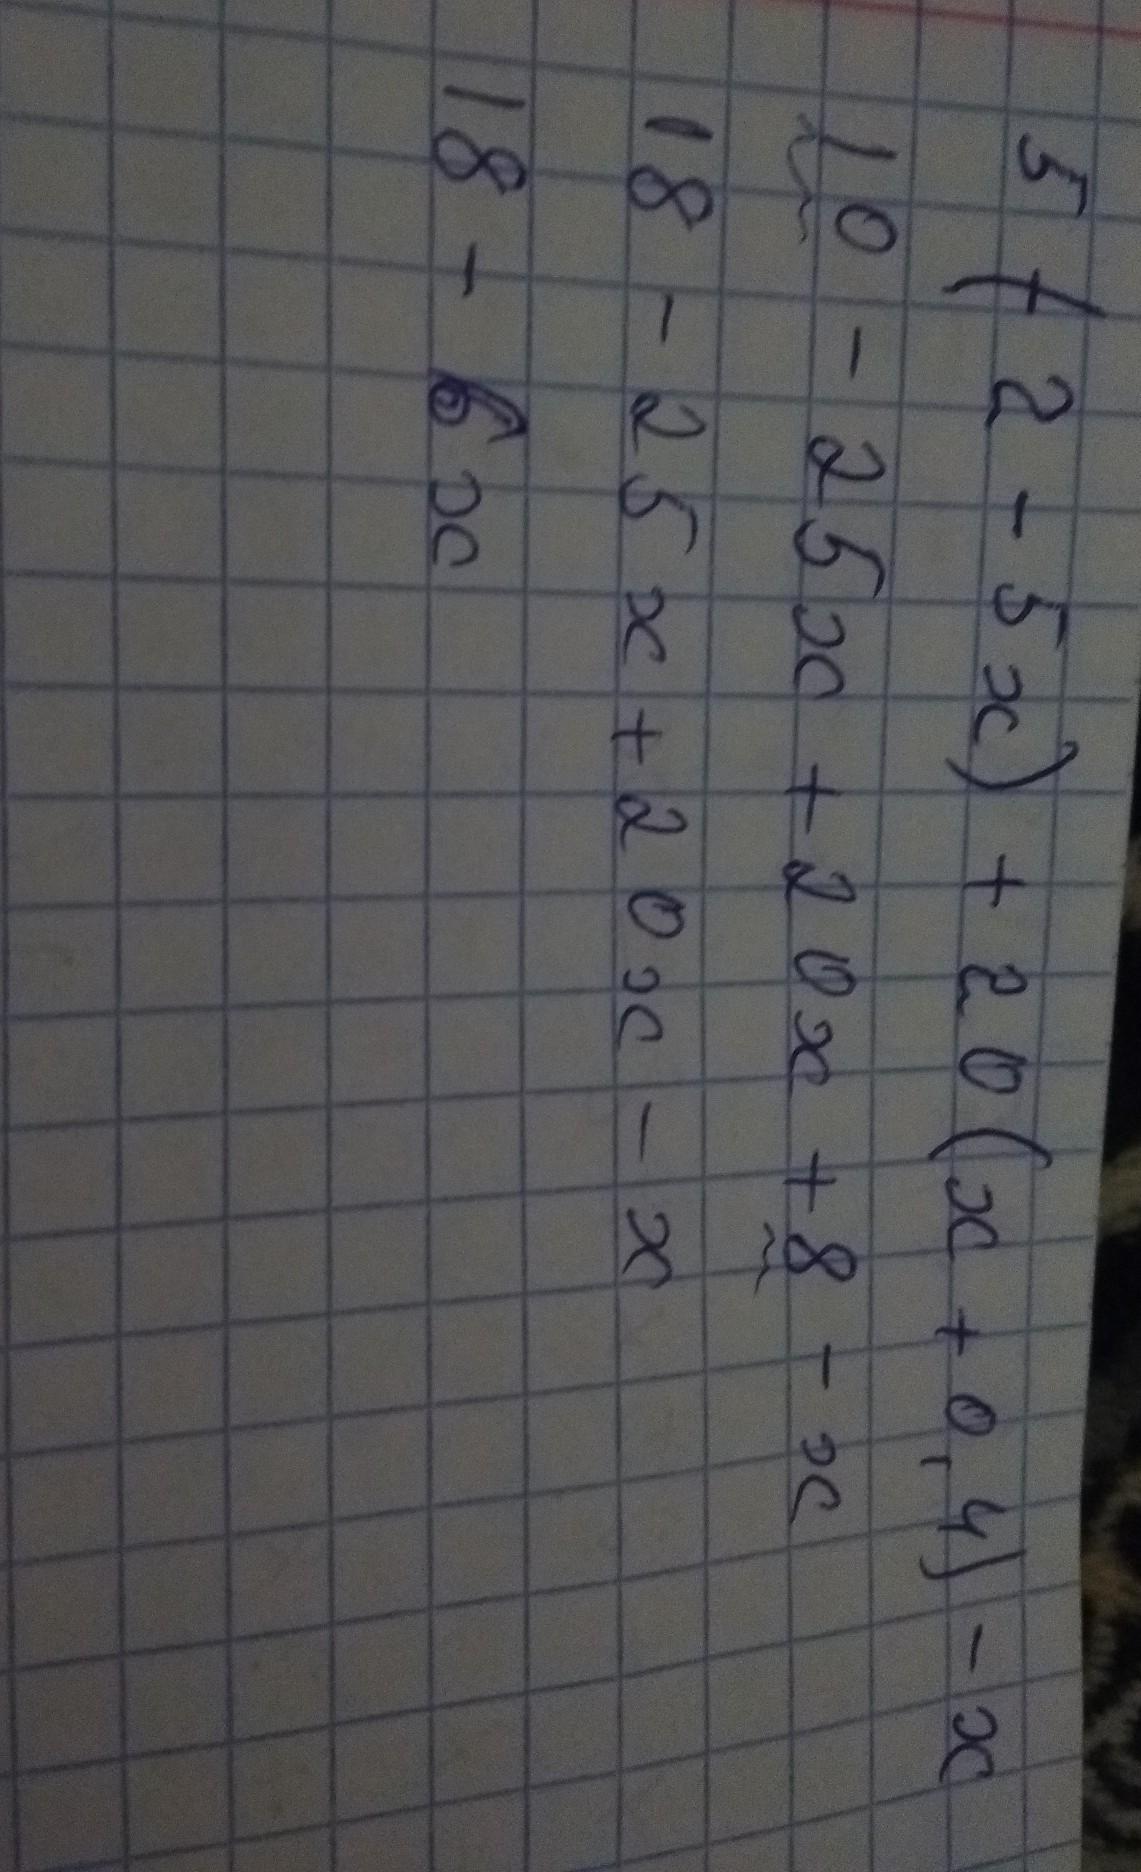 5(2-5x)+20(x+0,4)-x
10-25x+20x+8-x
18-25x+20x-x
18-6x